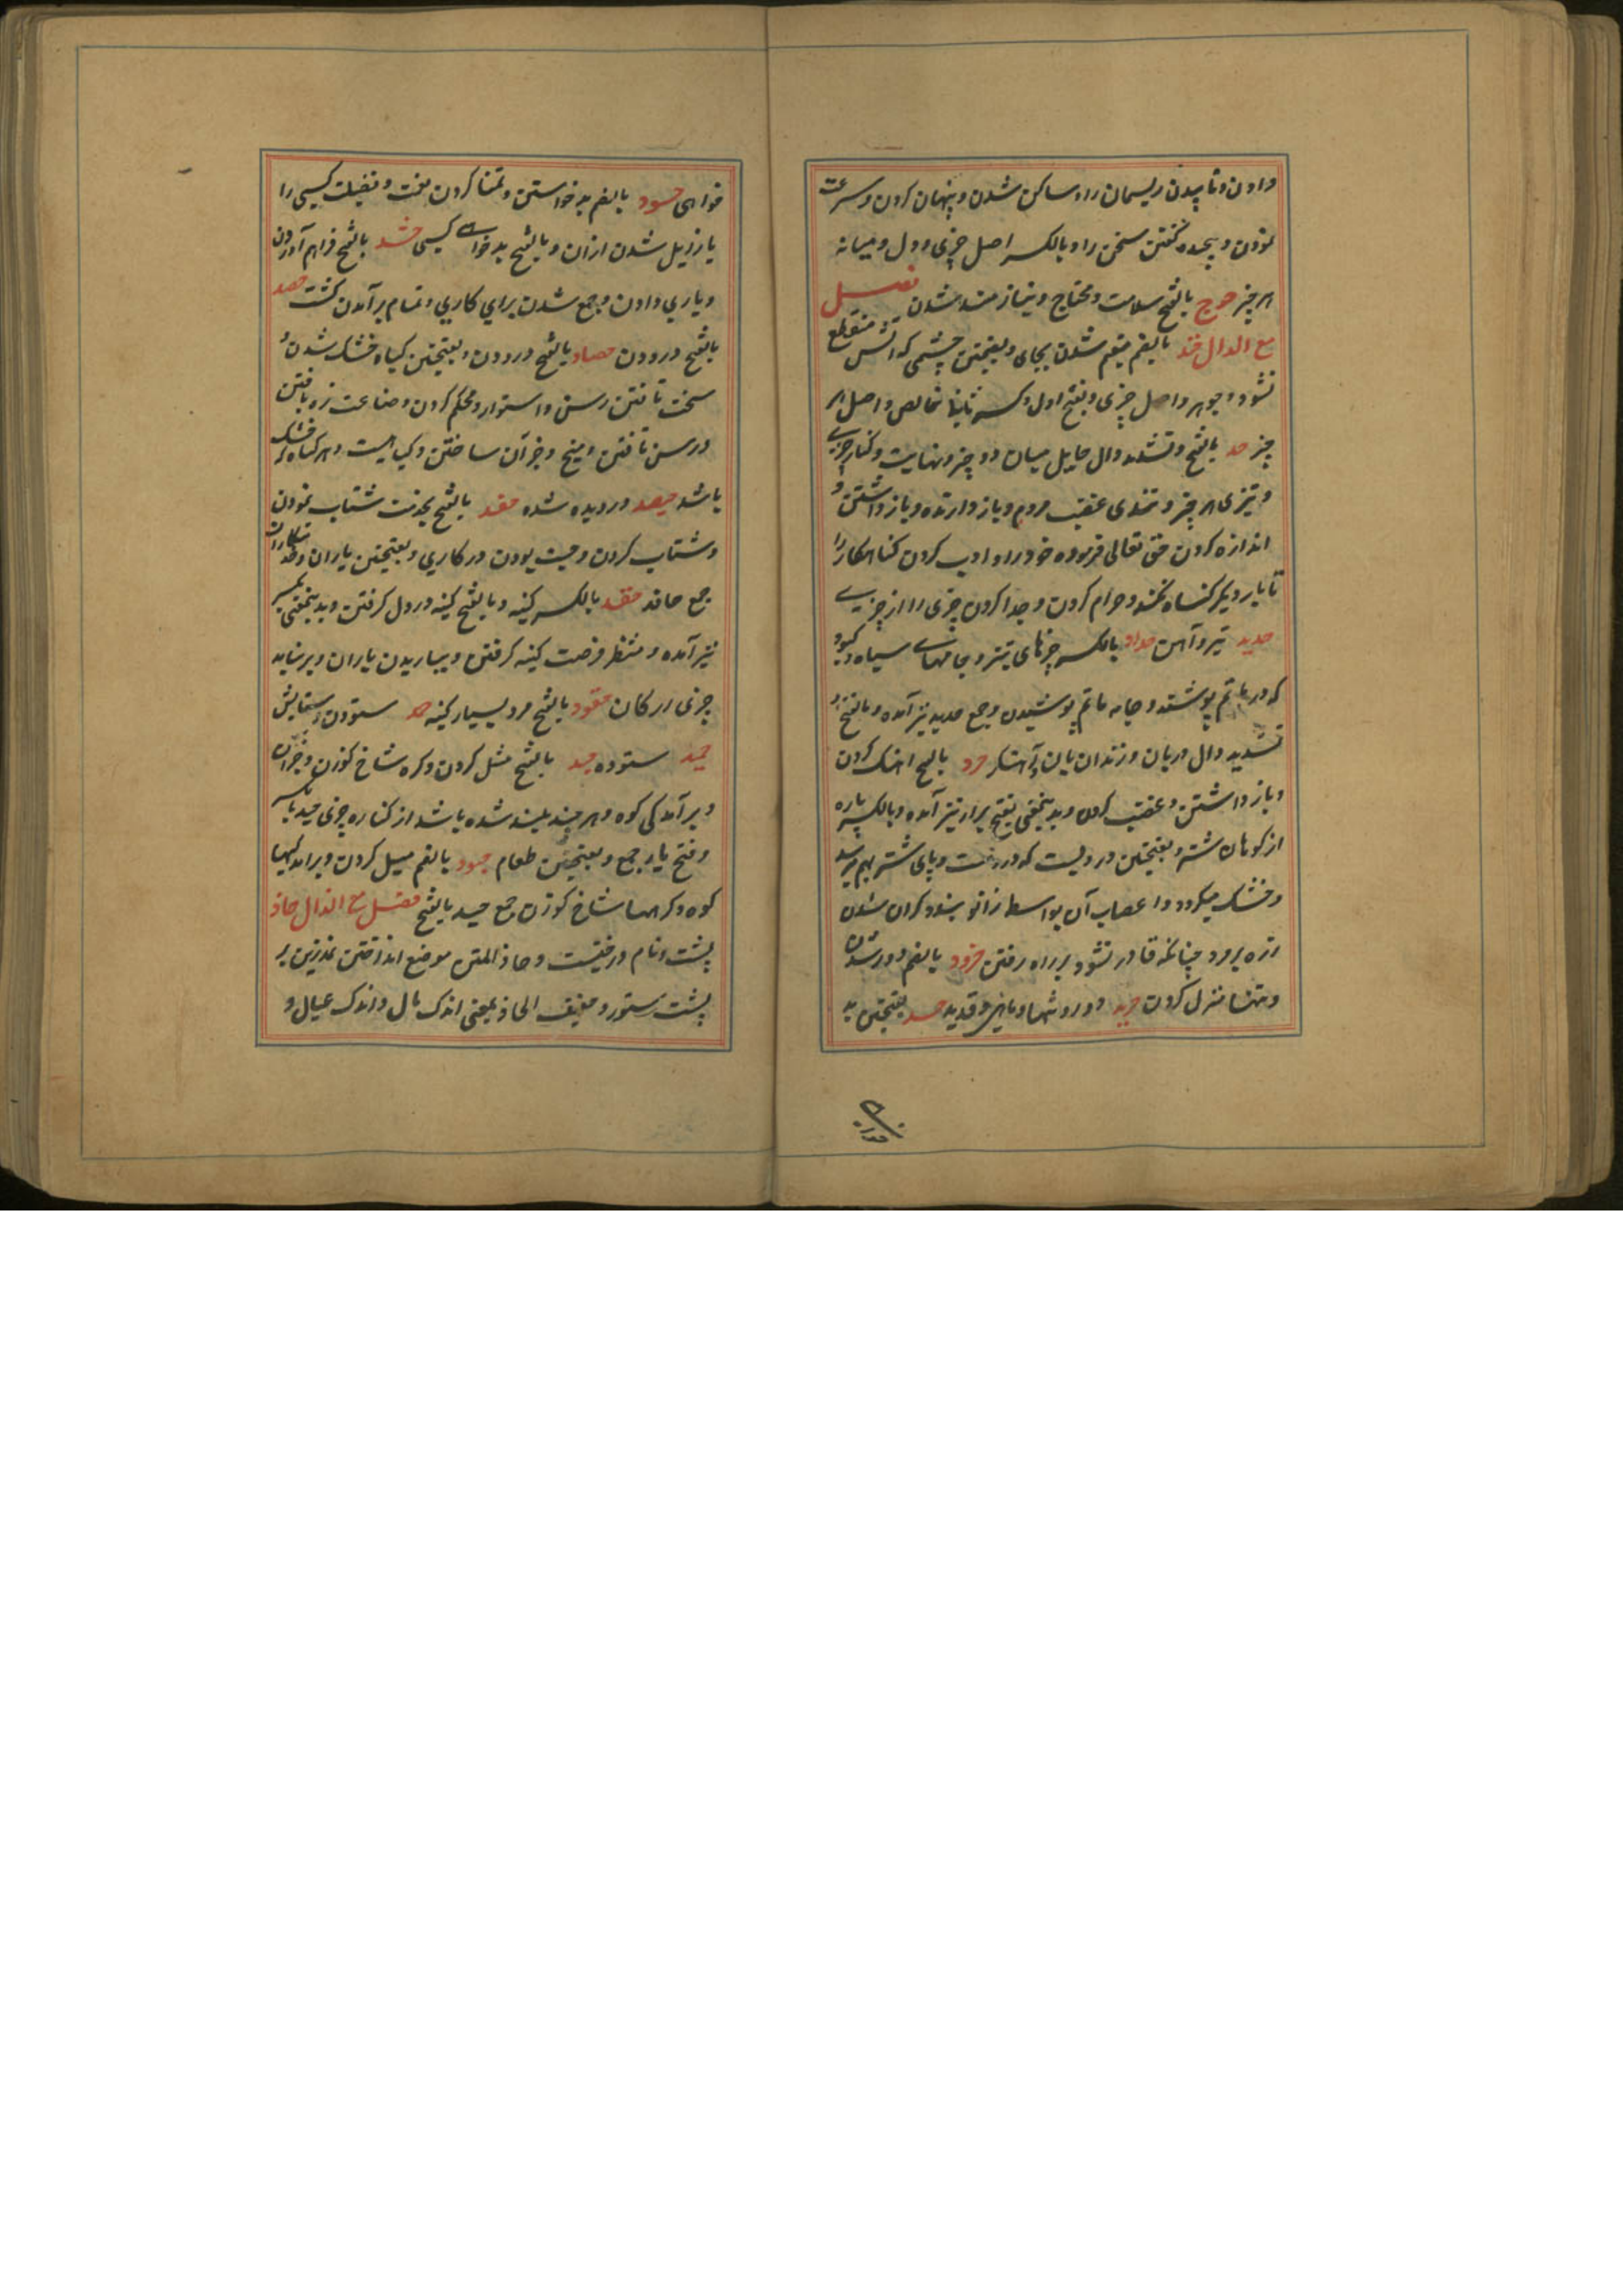 دادن و تاپیدن ریسمان را و ساکن شدن و پنهان کردن و سرعت
نمودن و پیچیده گفتن سخن را و بالکسر اصل چیزی و دل و میانه
هر چیز حوج بالفتح سلامت و محتاج و نیازمند شدن فصل
مع الدال حتد بالضم مقیم شدن بجای و بفتحتین چشمی که آبش منقطع
نشود و جوهر و اصل چیزی و بفتح اول و کسر ثانیا خالص و اصل هر
چیز حد بالفتح و تشدید دال حایل میان دو چیز و نهایت و کنار چیزی
و تیزی هر چیز و تندی غضب مردم و باز دارنده و باز داشتن و
اندازه کردن حق تعالی فرموده خود را و ادب کردن گناهکار را
تا بار دیگر گناه نکند و حرام کردن و جدا کردن چیزی را از چیزی
حدید تیز و آهن حداد بالکسر چیزهای تیز و جامهای سیاه و کبود
که در ماتم پوشند و جامه ماتم پوشیدن و جمع حدید نیز آمده و بالفتح و
تشدید دال دربان و زندان بان و آهنگر حرد بالفتح آهنگ کردن
و باز داشتن و غضب کردن و بدینمعنی بفتح را نیز آمده و بالکسر پاره
از کوهان شتر و بفتحتین دردیست که در دست و پای شتر بهم میرسد
و خشک میگردد و اعصاب آن بواسطه زانوبند و گران شدن
زره بر مرد چنانکه قادر نشود بر راه رفتن حرود بالضم دور شدن
و تنها منزل کردن حرید دور و تنها و ماهی و قدید حسد بفتحتین بد
خواهی حسود بالضم بد خواستن و تمنا کردن نعمت و فضیلت کسی را
یا زایل شدن ازان و بالفتح بدخواه کسی حشد بالفتح فراهم آوردن
و یاری دادن و جمع شدن برای کاری و تمام برآمدن کشت حصد
بالفتح درودن حصاد بالفتح درودن و بفتحتین گیاه خشک شدن و
سخت تافتن رسن و استوار و محکم کردن و صناعت زره بافتن
و رسن تافتن و میخ و جز آن ساختن و گیاهیست و هر گیاه که خشک
باشد حصید درویده شده حفد بالفتح بخدمت شتاب نمودن
و شتاب کردن و چست بودن در کاری و بفتحتین یاران و خدمتکاران
جمع حافد حقد بالکسر کینه و بالفتح کینه در دل گرفتن و بدینمعنی بکسر
نیز آمده و منتظر فرصت کینه گرفتن و بباریدن باران و برنیامدن
چیزی از کان حقود بالفتح مرد بسیار کینه حمد ستودن و ستایش
حمید ستوده حید بالفتح میل کردن و گره شاخ گوزن و جز آن
و برآمدگی کوه و هر چند بلند شده باشد از کناره چیزی حید بکسر
و فتح یا جمع و بفتحتین طعام حیود بالضم میل کردن و برآمدگیها
کوه و گرهها شاخ گوزن جمع حید بالفتح فصل مع الذال حاذ
پشت و نام درختیست و حاذ المتن موضع انداختن نمدزین بر
پشت ستور و خفیف الحاذ یعنی اندک مال و اندک عیال و